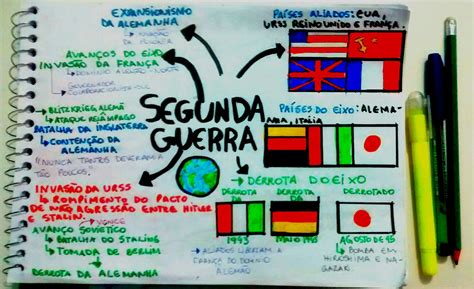 EXPANSIONISMO
DA ALEMANHA
↳ INVASÃO
DA POLÔNIA
AVANÇOS DO EIXO
INVASÃO DA FRANÇA
↳ DOMÍNIO NORTE
GOVERNADOR
COLABORACIONISTA-SUL
↳ BLITZKRIEG ALEMÃ
↳ ATAQUE RELÂMPAGO
BATALHA DA INGLATERRA
↳ CONTENÇÃO DA
ALEMANHA
"NUNCA TANTOS DEVERAM A
TÃO POUCOS."
INVASÃO DA URSS
↳ ROMPIMENTO DO PACTO
DE NÃO AGRESSÃO ENTRE HITLER
E STALIN.
AVANÇO SOVIÉTICO
↳ BATALHA DO STALING
↳ TOMADA DE BERLIM
DERROTA DA ALEMANHA
SEGUNDA
GUERRA
PAÍSES ALIADOS: EUA,
URSS REINO UNIDO E FRANÇA.
PAÍSES DO EIXO: ALEMA-
NHA, ITÁLIA
↳ DERROTA DO EIXO
DERROTA
DA
DERROTA
DA
DERROTADO
1943
MAIO 1945
AGOSTO DE 45
↳ ALIADOS LIBERTAM A
FRANÇA DO DOMÍNIO
ALEMÃO
↳ BOMBA EM
HIROSHIMA E NA-
GAZAKI.